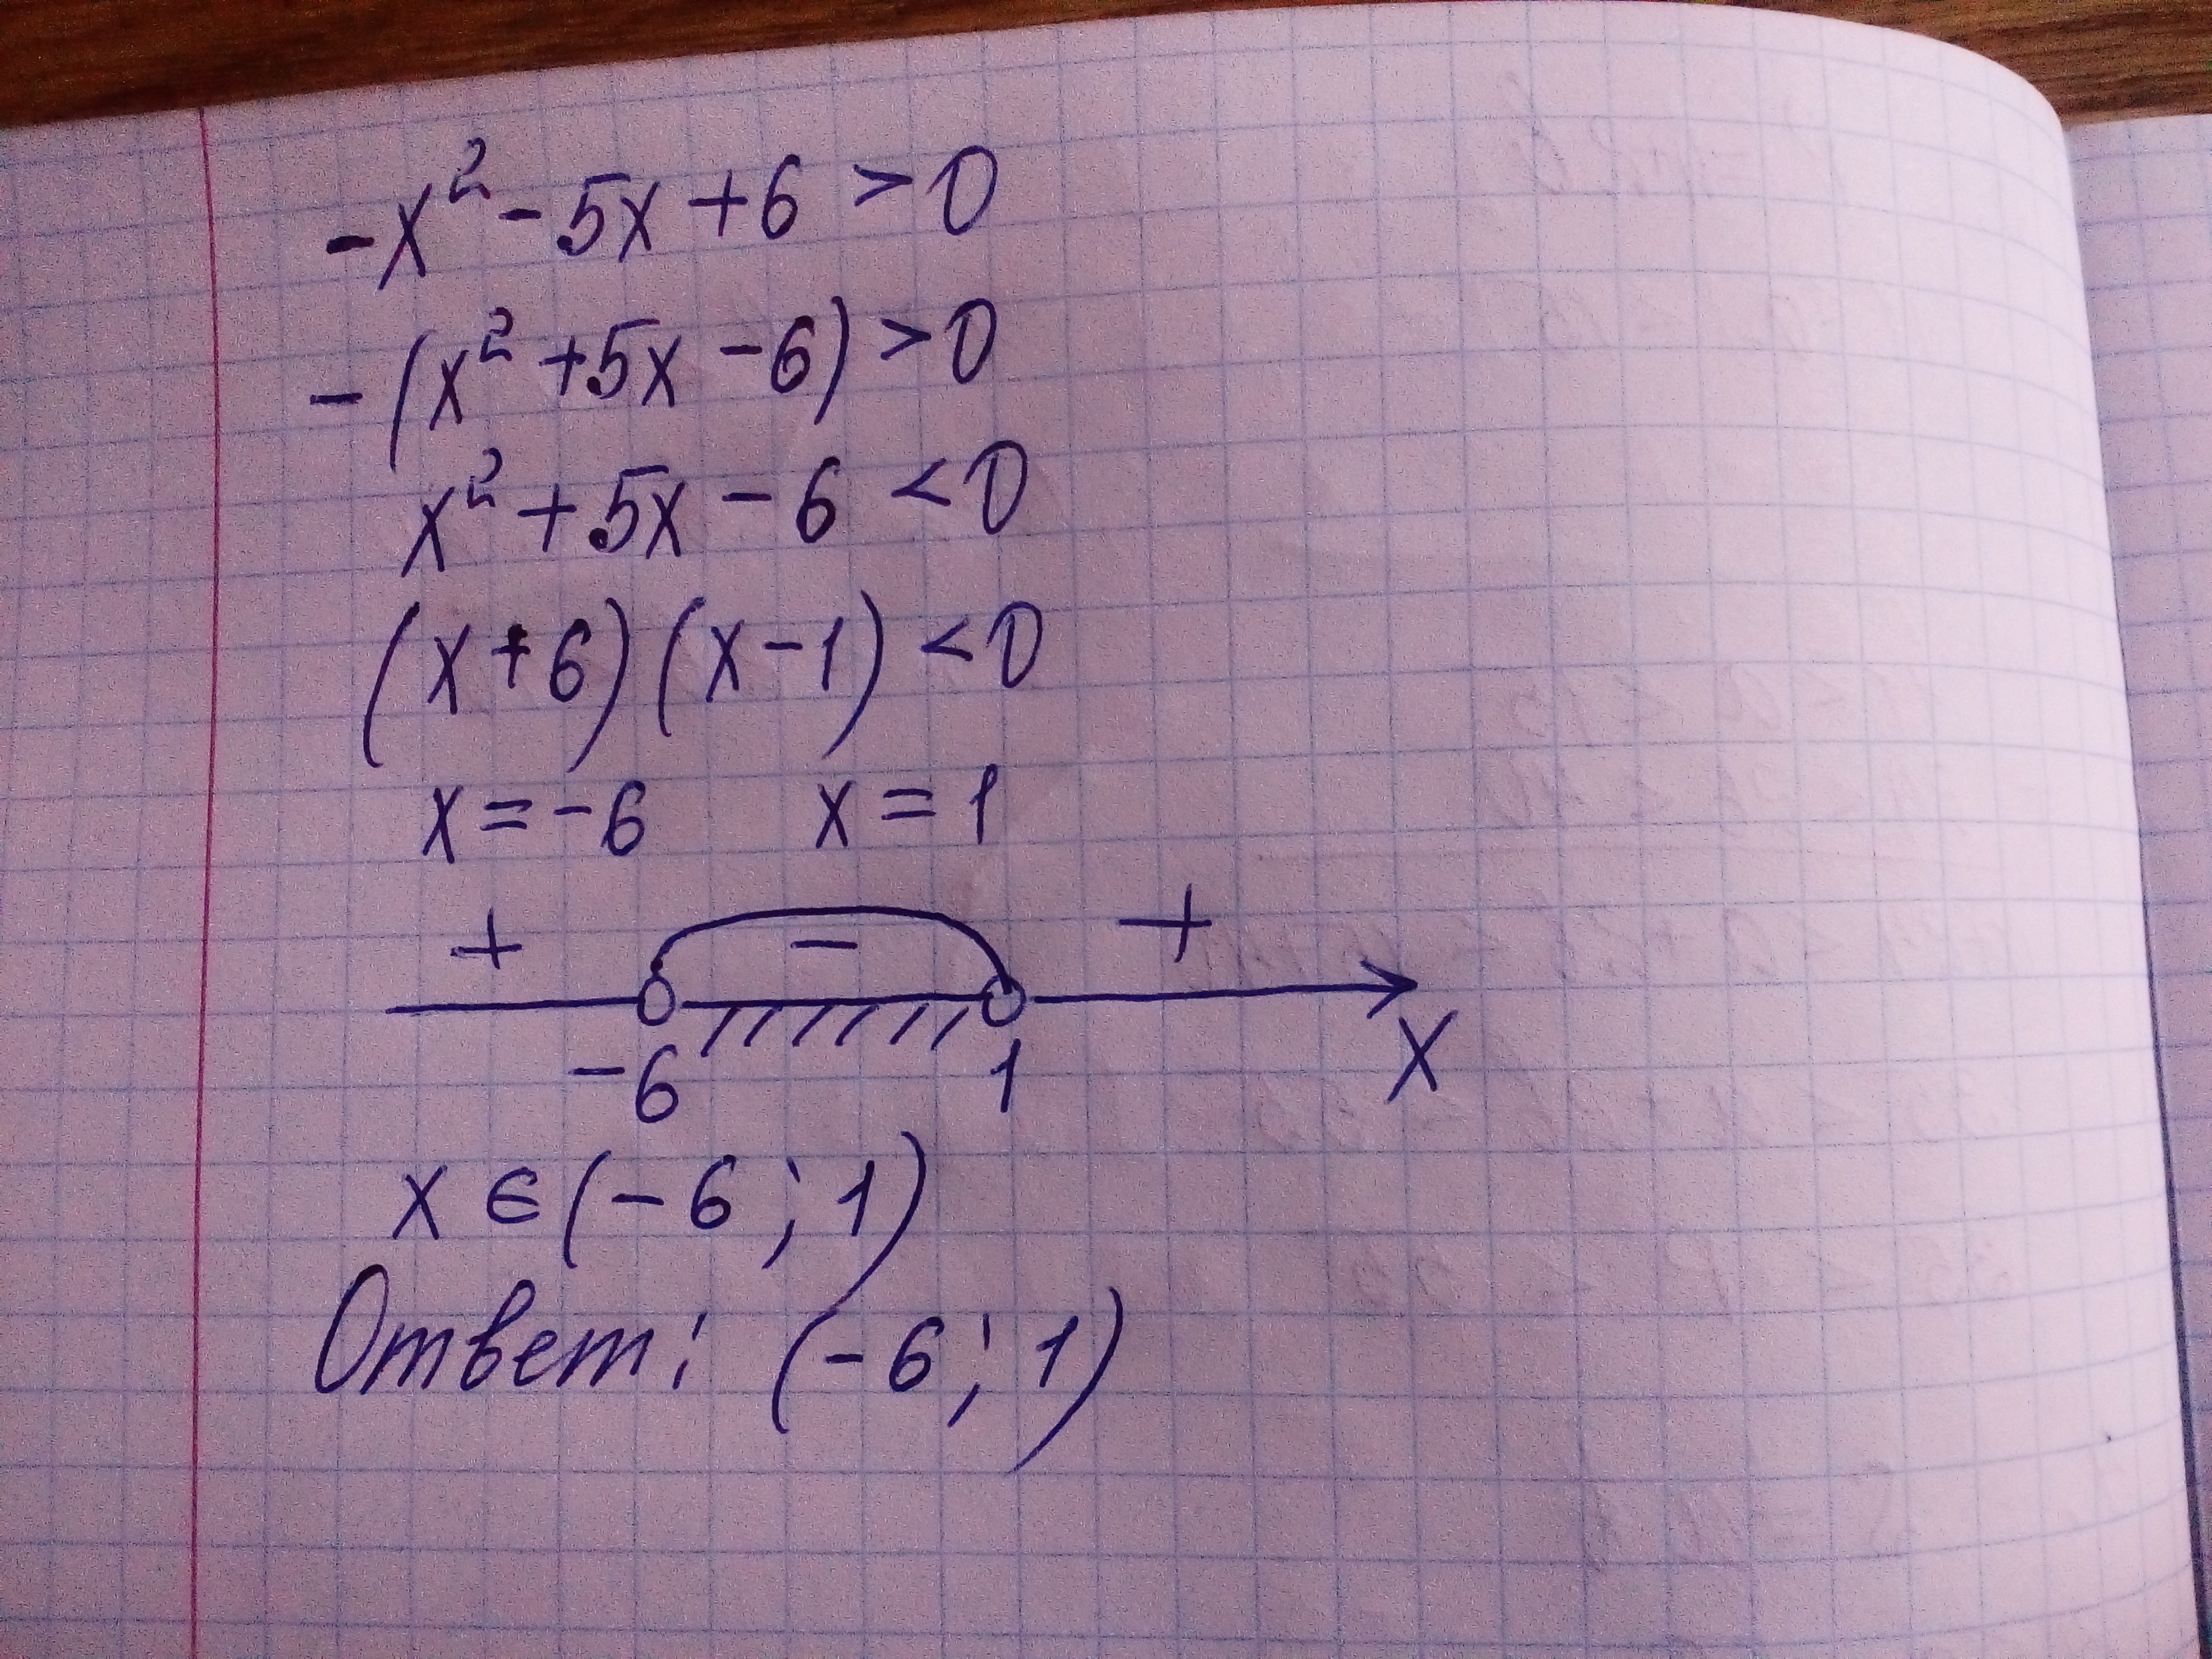 -x² - 5x + 6 > 0
-(x² + 5x - 6) > 0
x² + 5x - 6 < 0
(x + 6)(x - 1) < 0
x = -6 x = 1
+ - +
-6 1 x
x ∈ (-6; 1)
Ответ: (-6; 1)